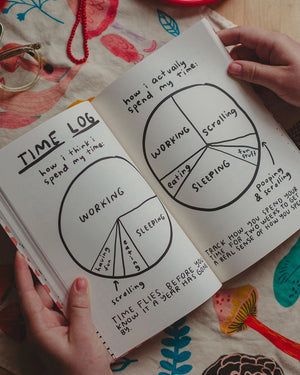 TIME LOG
how i think i
spend my time:
WORKING
SLEEPING
having
fun
eating
scrolling
TIME FLIES. BEFORE YOU
KNOW IT A YEAR HAS GONE
BY.
how i actually
spend my time:
WORKING
Scrolling
fun
stuff
eating
SLEEPING
pooping
& scrolling
TRACK HOW YOU SPEND YOUR
TIME FOR TWO WEEKS TO GET
A REAL SENSE OF HOW YOU